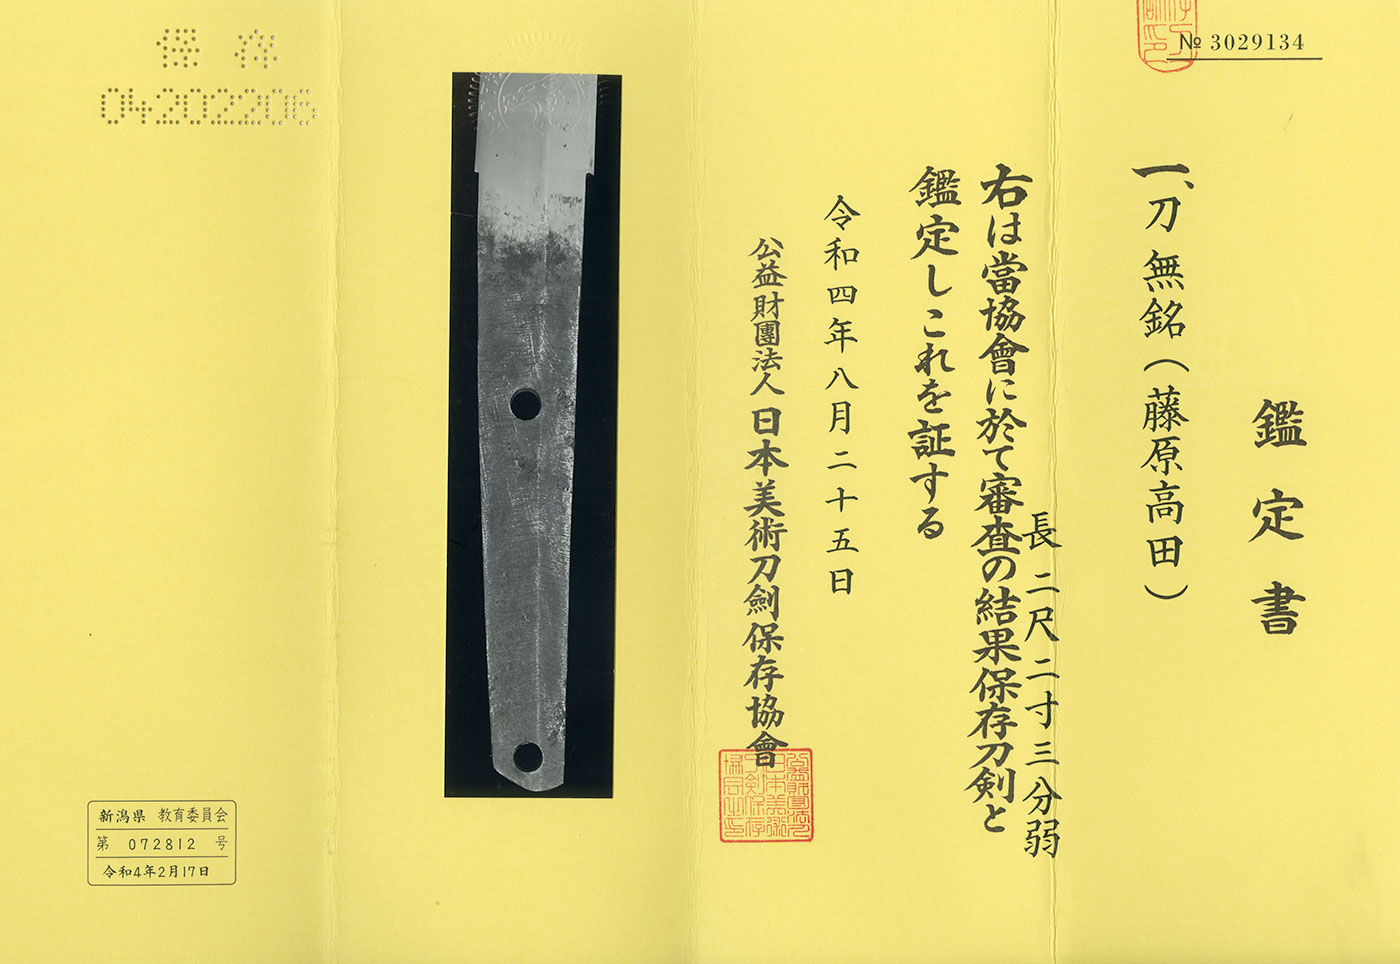 № 3029134
鑑定書
一、刀 無銘（藤原高田）
長 二尺二寸三分弱
右は當協會に於て審査の結果保存刀剣と
鑑定しこれを証する
令和四年八月二十五日
公益財團法人 日本美術刀劍保存協會
保存
04202206
新潟県 教育委員会
第 072812 号
令和4年2月17日